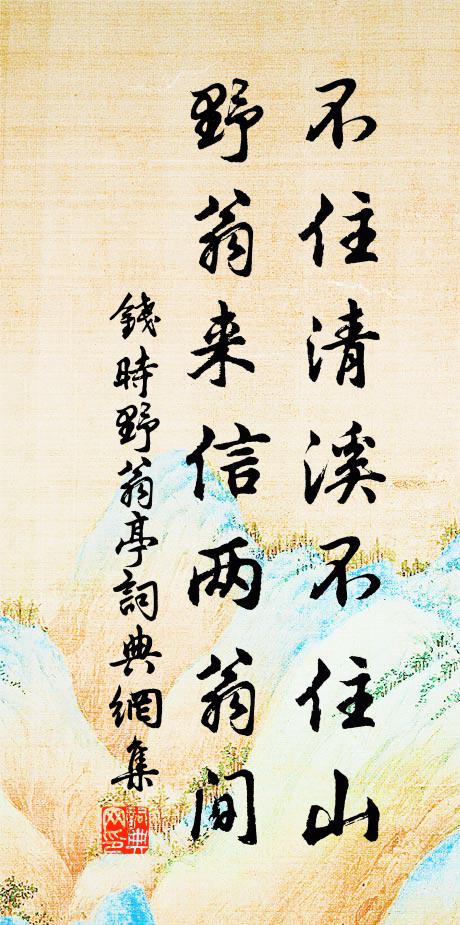 不住清溪不住山
野翁来信两翁间
錢時野翁亭詞典網集
詞典